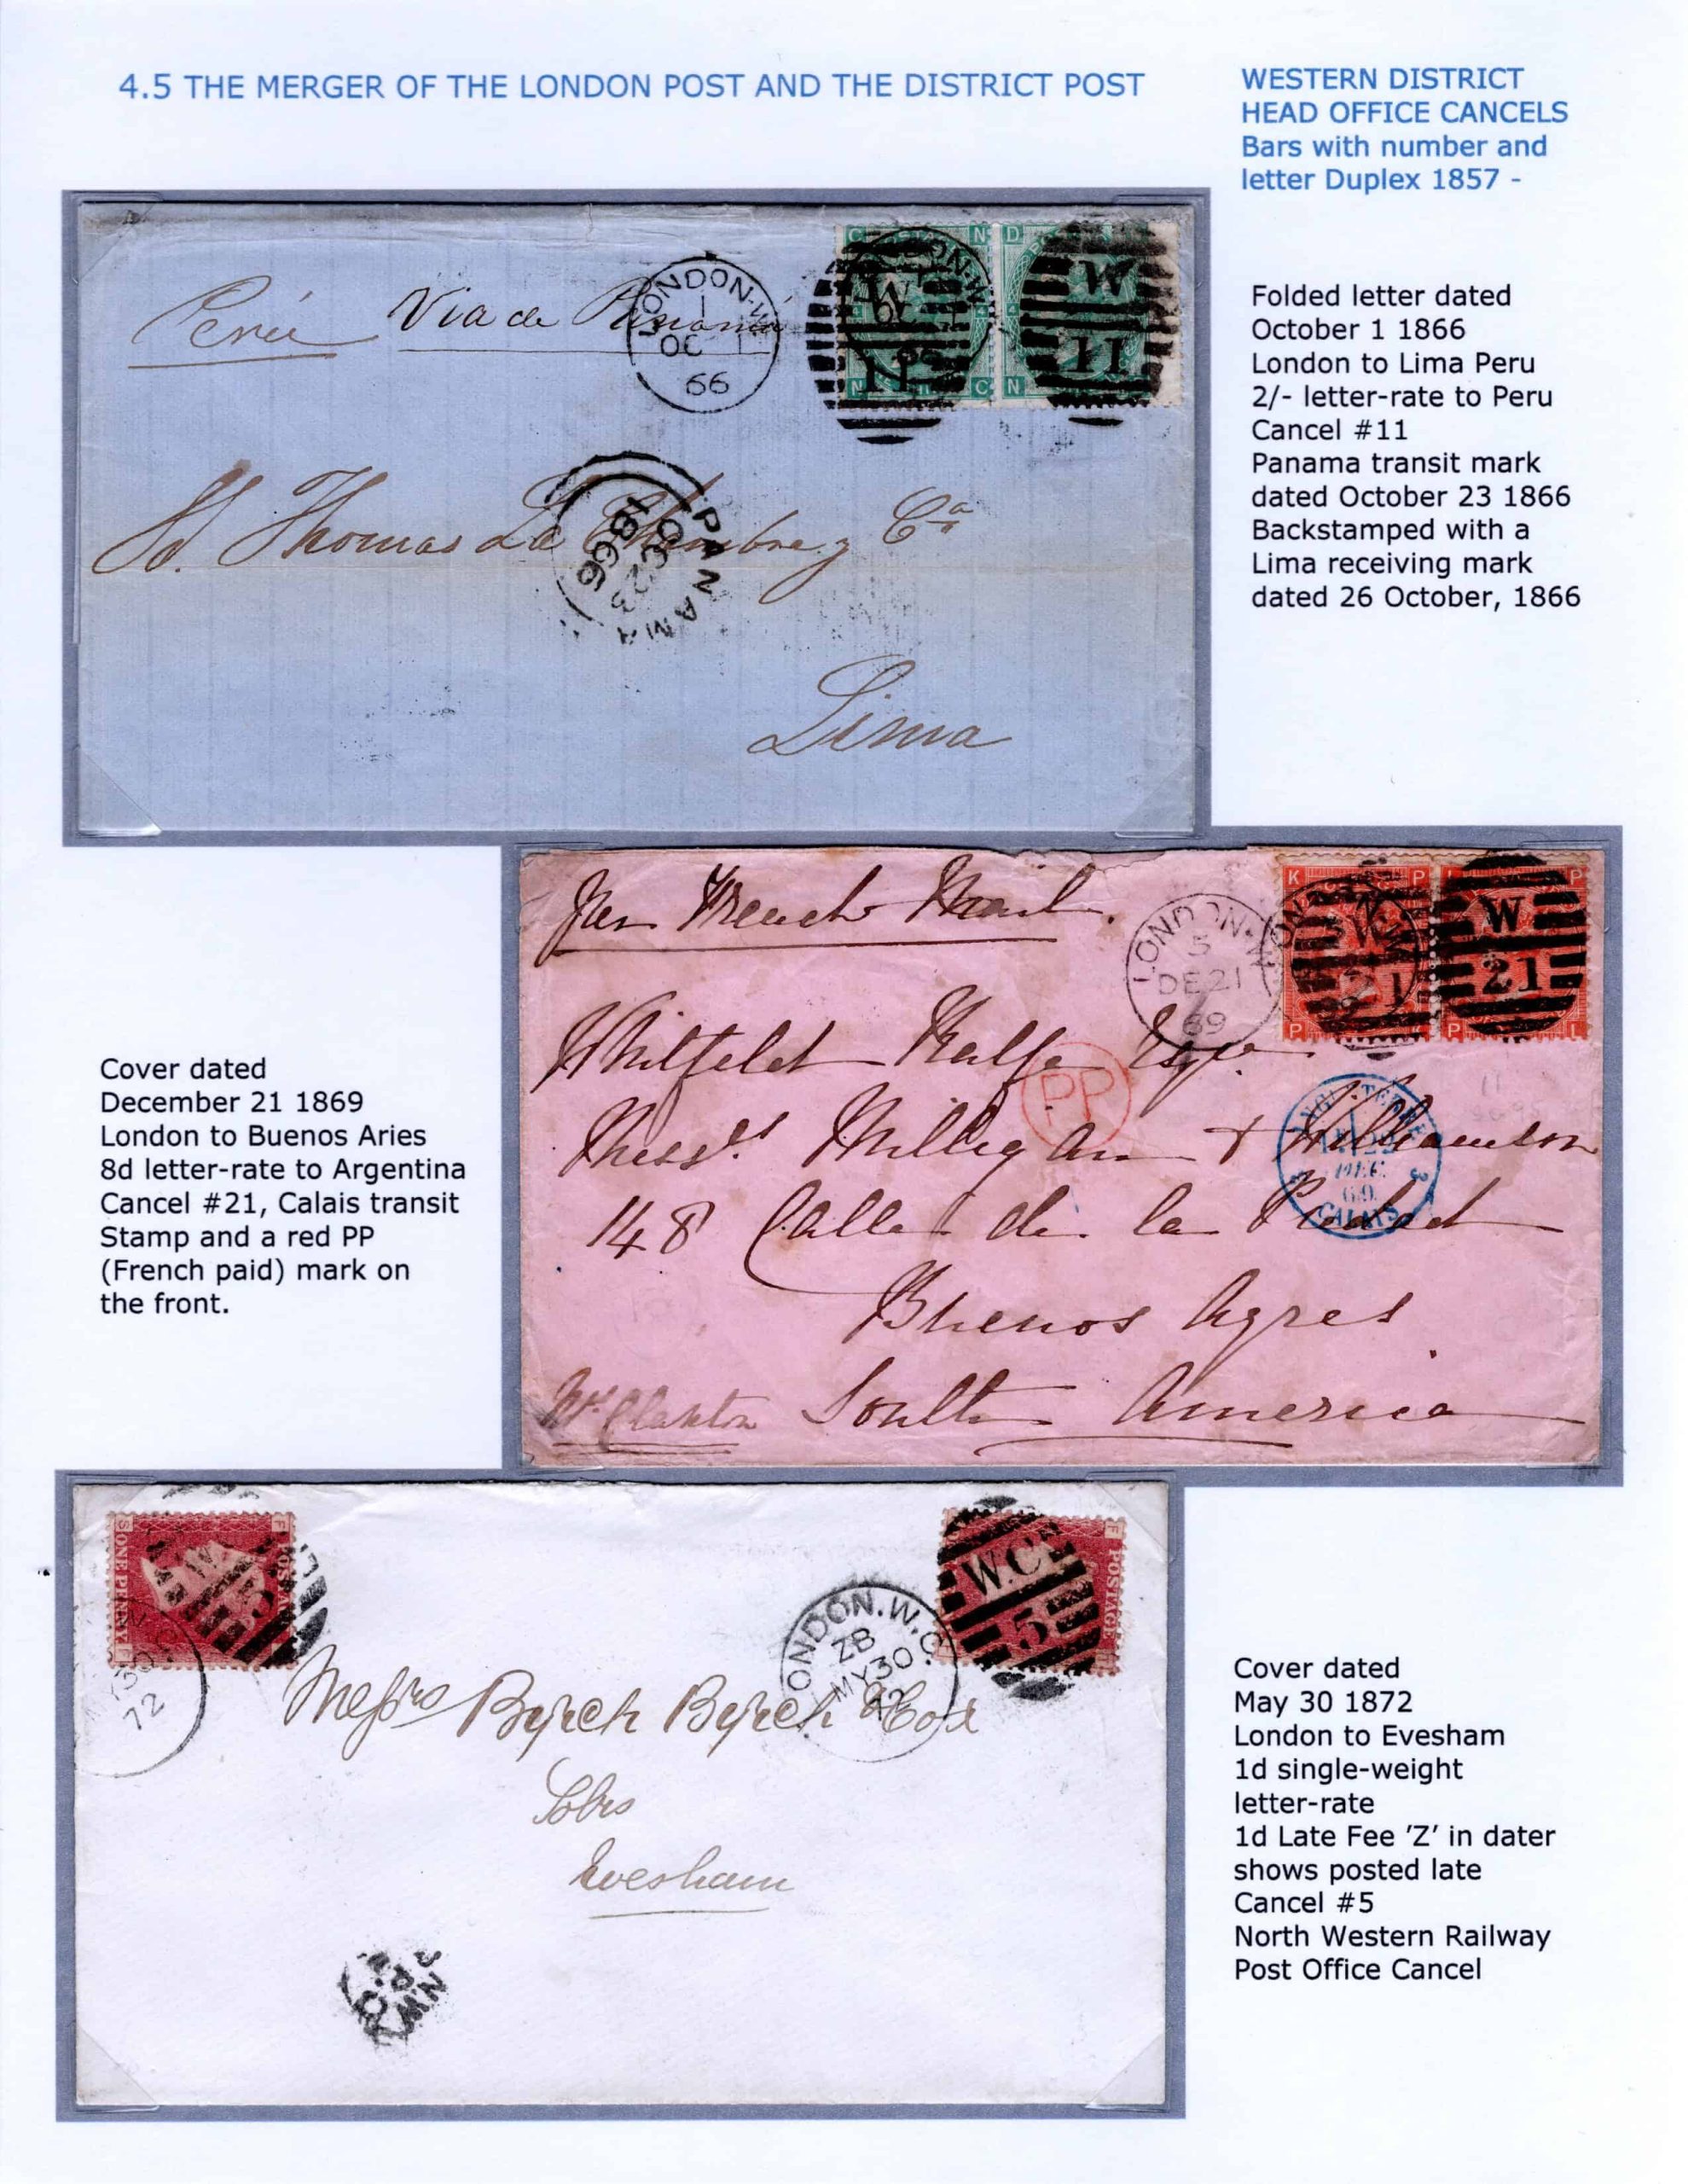 4.5 THE MERGER OF THE LONDON POST AND THE DISTRICT POST
WESTERN DISTRICT
HEAD OFFICE CANCELS
Bars with number and
letter Duplex 1857 -
Folded letter dated
October 1 1866
London to Lima Peru
2/- letter-rate to Peru
Cancel #11
Panama transit mark
dated October 23 1866
Backstamped with a
Lima receiving mark
dated 26 October, 1866
Perú Via de Panamá
LONDON-W
1
OC 1
66
C N
D
W
11
W
11
N C
N
Sd. Thomas La Chambre y Ca
PANAMA
OC 23
1866
Lima
Cover dated
December 21 1869
London to Buenos Aries
8d letter-rate to Argentina
Cancel #21, Calais transit
Stamp and a red PP
(French paid) mark on
the front.
per French Mail.
LONDON-W
5
DE 21
69
K P
P
W
21
W
21
P
P L
Esqre
PP
Messrs Milligan & Williamson
DEC.
69
CALAIS
3
148 Calle de la
Buenos Ayres
South America
ONE PENNY
POSTAGE
W.C
5
MY 30
72
LONDON.W.C
ZB
MY 30
72
W.C
5
POSTAGE
Messrs Byrch Byrch & Cox
Solrs
Evesham
Cover dated
May 30 1872
London to Evesham
1d single-weight
letter-rate
1d Late Fee 'Z' in dater
shows posted late
Cancel #5
North Western Railway
Post Office Cancel